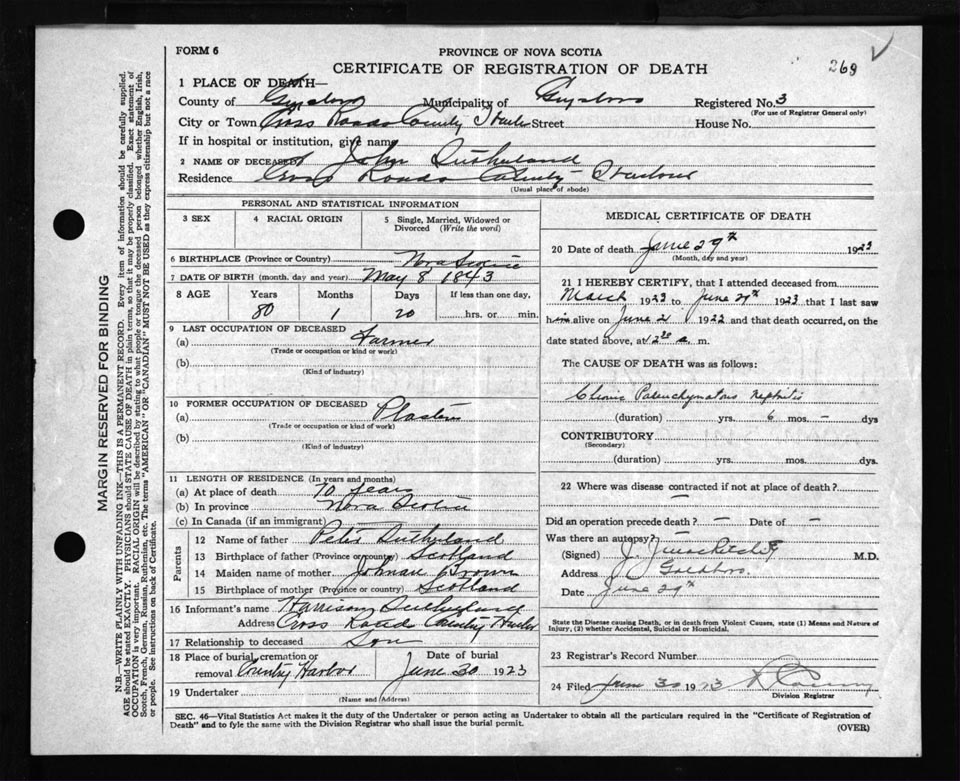 FORM 6
PROVINCE OF NOVA SCOTIA
CERTIFICATE OF REGISTRATION OF DEATH
269
1 PLACE OF DEATH—
County of Guysboro Municipality of Guysboro Registered No. 3
(For use of Registrar General only)
City or Town Cross Roads Country Harbor Street House No.
If in hospital or institution, give name
2 NAME OF DECEASED John Sutherland
Residence Cross Roads Country Harbour
(Usual place of abode)
PERSONAL AND STATISTICAL INFORMATION
3 SEX 4 RACIAL ORIGIN 5 Single, Married, Widowed or Divorced (Write the word)
6 BIRTHPLACE (Province or Country) Nova Scotia
7 DATE OF BIRTH (month, day and year) May 8 1843
8 AGE Years Months Days If less than one day,
80 1 20 hrs. or min.
9 LAST OCCUPATION OF DECEASED
(a) Farmer
(Trade or occupation or kind or work)
(b)
(Kind of industry)
10 FORMER OCCUPATION OF DECEASED
(a)
(Trade or occupation or kind of work)
(b)
(Kind of industry)
11 LENGTH OF RESIDENCE (In years and months)
(a) At place of death 70 years
(b) In province Nova Scotia
(c) In Canada (if an immigrant)
Parents
12 Name of father Peter Sutherland
13 Birthplace of father (Province or country) Scotland
14 Maiden name of mother Brown
15 Birthplace of mother (Province or country) Scotland
16 Informant's name Harrison Sutherland
Address Cross Roads Country Harbor
17 Relationship to deceased Son
18 Place of burial, cremation or removal Country Harbor
Date of burial June 30 1923
19 Undertaker
(Name and Address)
MEDICAL CERTIFICATE OF DEATH
20 Date of death June 29th 1923
(Month, day and year)
21 I HEREBY CERTIFY, that I attended deceased from
March 1923 to June 29th 1923 that I last saw
him alive on June 21 1922 and that death occurred, on the
date stated above, at 12 30 a. m.
The CAUSE OF DEATH was as follows:
Chronic Parenchymatous Nephritis
(duration) yrs. 6 mos. – dys
CONTRIBUTORY
(Secondary)
(duration) yrs. mos. dys.
22 Where was disease contracted if not at place of death?
—
Did an operation precede death? — Date of —
Was there an autopsy?
(Signed) M.D.
Address Goldboro.
Date June 29th
State the Disease causing Death, or in death from Violent Causes, state (1) Means and Nature of
Injury, (2) whether Accidental, Suicidal or Homicidal.
23 Registrar's Record Number
24 Filed June 30 1923
Division Registrar
SEC. 46—Vital Statistics Act makes it the duty of the Undertaker or person acting as Undertaker to obtain all the particulars required in the "Certificate of Registration of
Death" and to fyle the same with the Division Registrar who shall issue the burial permit.
(OVER)
MARGIN RESERVED FOR BINDING
N.B.—WRITE PLAINLY WITH UNFADING INK—THIS IS A PERMANENT RECORD. Every item of information should be carefully supplied.
AGE should be stated EXACTLY. PHYSICIANS should STATE CAUSE OF DEATH in plain terms, so that it may be properly classified. Exact statement of
OCCUPATION is very important. RACIAL ORIGIN will be described by stating to what people or tongue the deceased person belonged whether English, Irish,
Scotch, French, German, Russian, Ruthenian, etc. The terms "AMERICAN" OR "CANADIAN" MUST NOT BE USED as they express citizenship but not a race
or people. See instructions on back of Certificate.